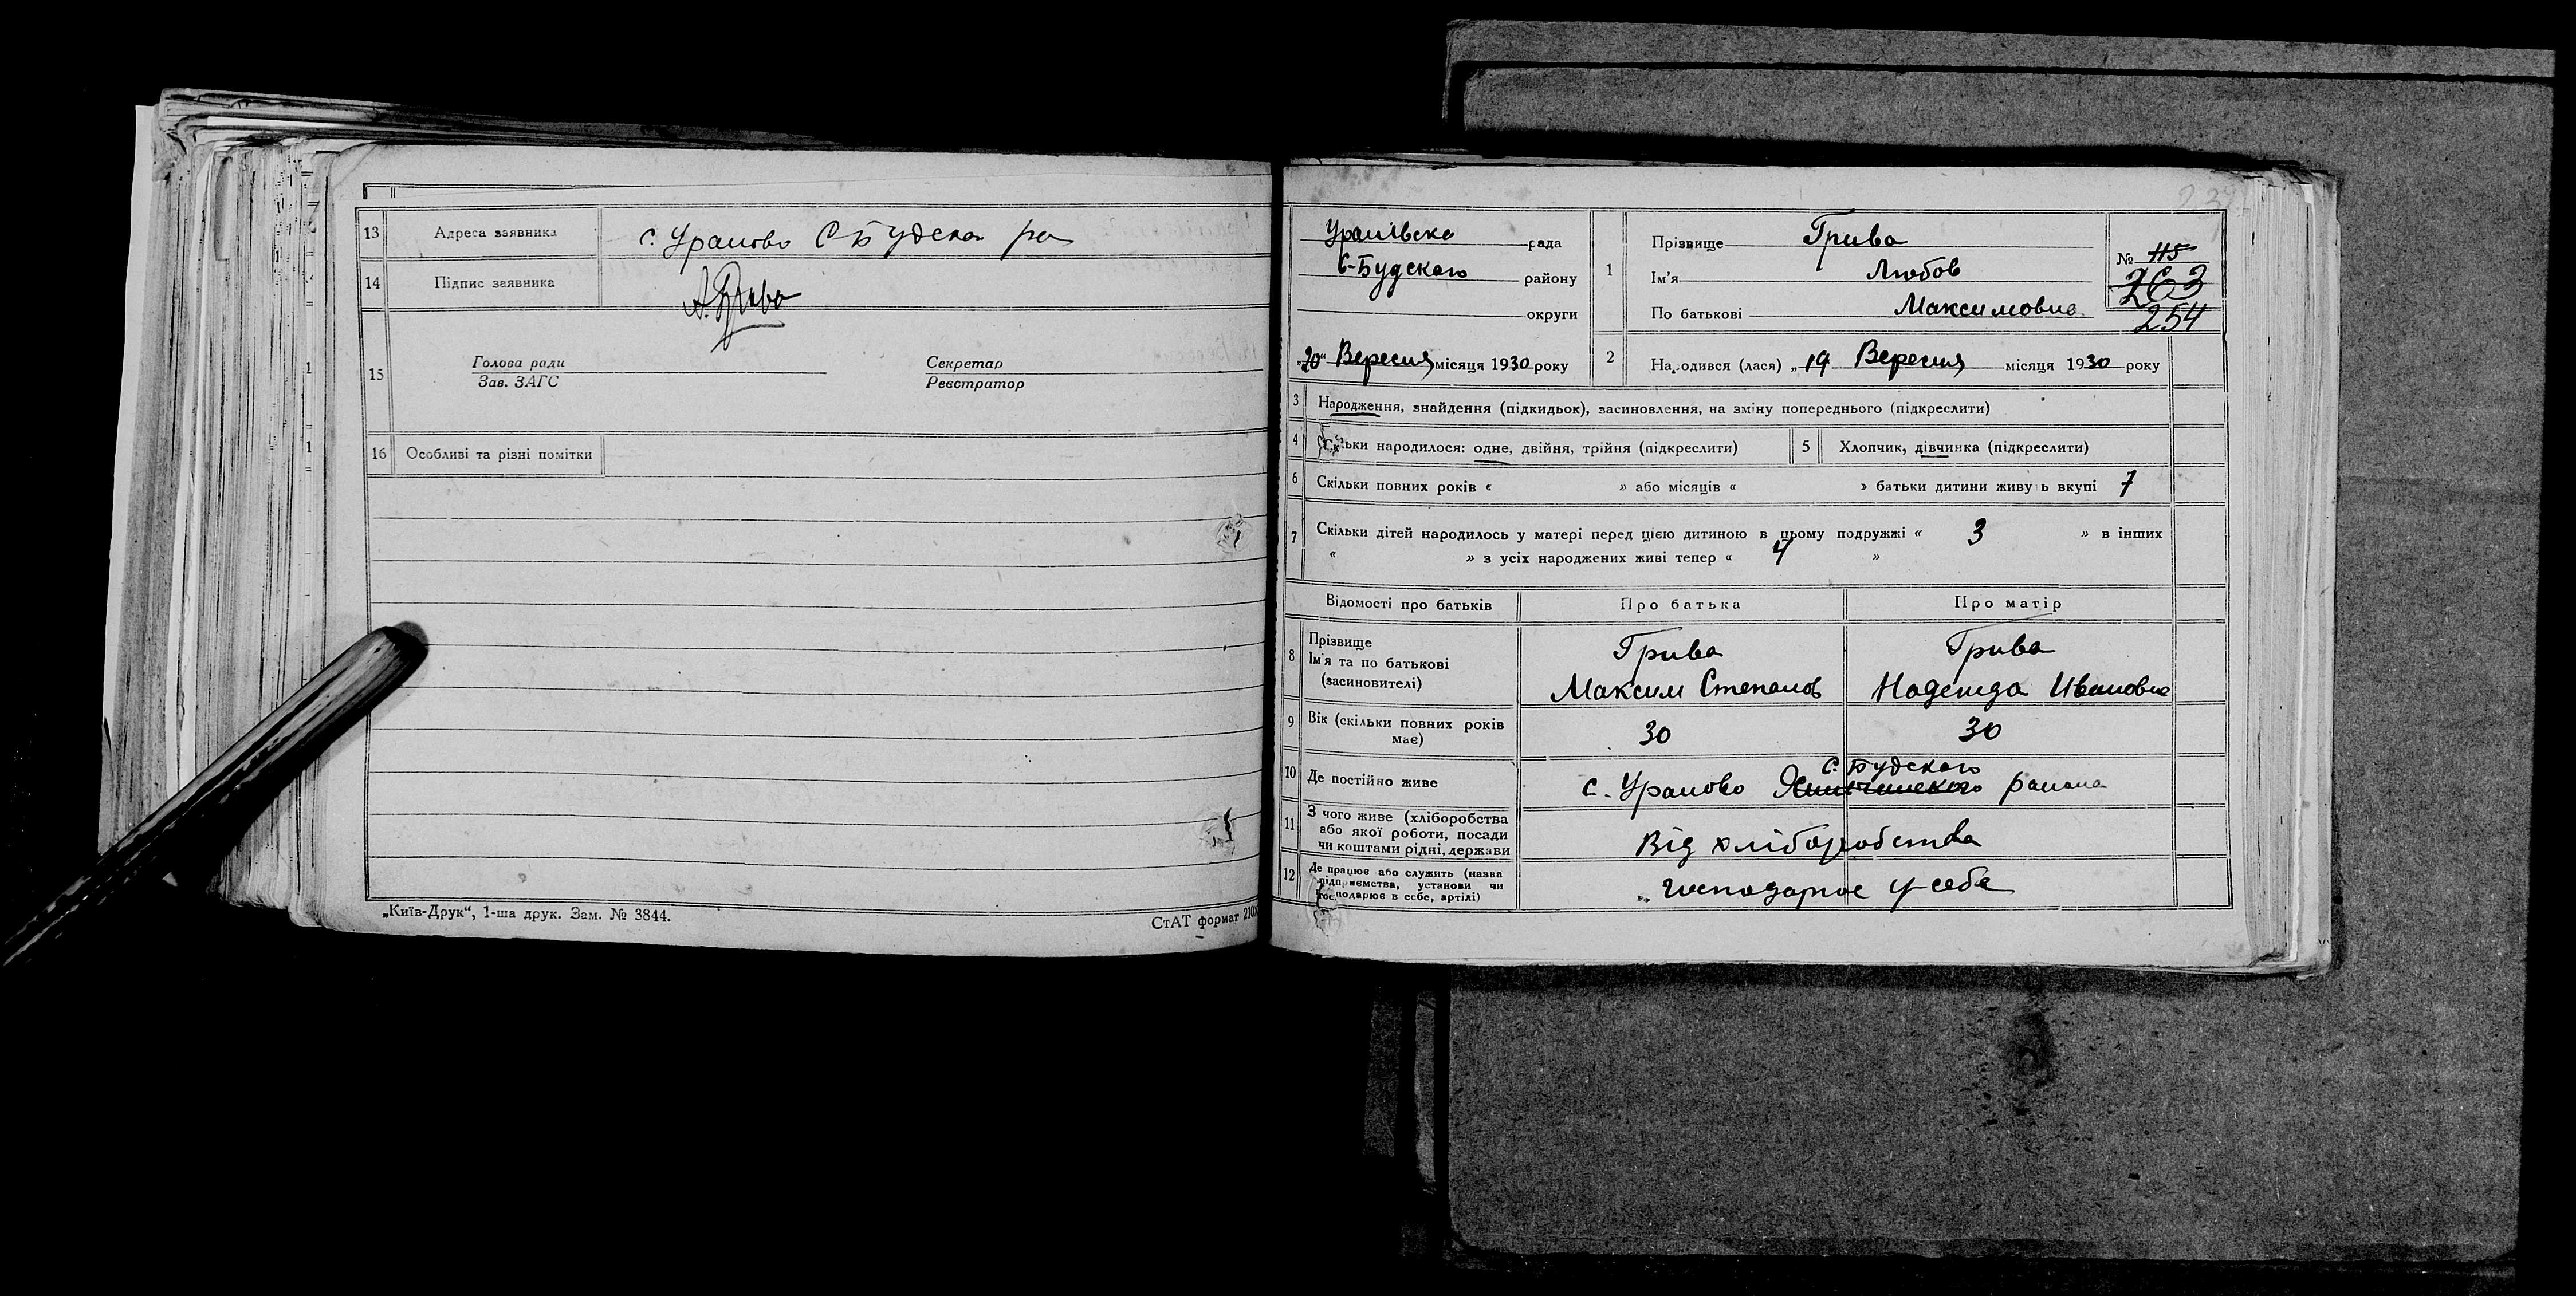 13 Адреса заявника с. Уралово С Будская ра
14 Підпис заявника А. Грива
15 Голова ради Секретар
Зав. ЗАГС Реєстратор
16 Особливі та різні помітки
„Київ-Друк“, 1-ша друк. Зам. № 3844.
СтАТ формат 210
Ураливска рада
С-Будского району
округи
„20“ Вересня місяця 1930 року
1 Прізвище Грива
Ім'я Любов
По батькові Максимовна
№ 115
263
254
2 Народився (лася) „19 Вересня місяця 1930 року
3 Народження, знайдення (підкидьок), засиновлення, на зміну попереднього (підкреслити)
4 Скільки народилося: одне, двійня, трійня (підкреслити) 5 Хлопчик, дівчинка (підкреслити)
6 Скільки повних років « » або місяців « » батьки дитини живуть вкупі 7
7 Скільки дітей народилось у матері перед цією дитиною в цьому подружжі « 3 » в інших
« » з усіх народжених живі тепер « 4 »
Відомості про батьків Про батька Про матір
8 Прізвище Грива Грива
Ім'я та по батькові
(засиновителі) Максим Степанов Надежда Ивановна
9 Вік (скільки повних років має) 30 30
С. Будского
10 Де постійно живе с. Уралово района
11 З чого живе (хліборобства
або якої роботи, посади
чи коштами рідні, держави Від хліборобства
12 Де працює або служить (назва
підприємства, установи чи
господарює в себе, артілі) господарює у себе